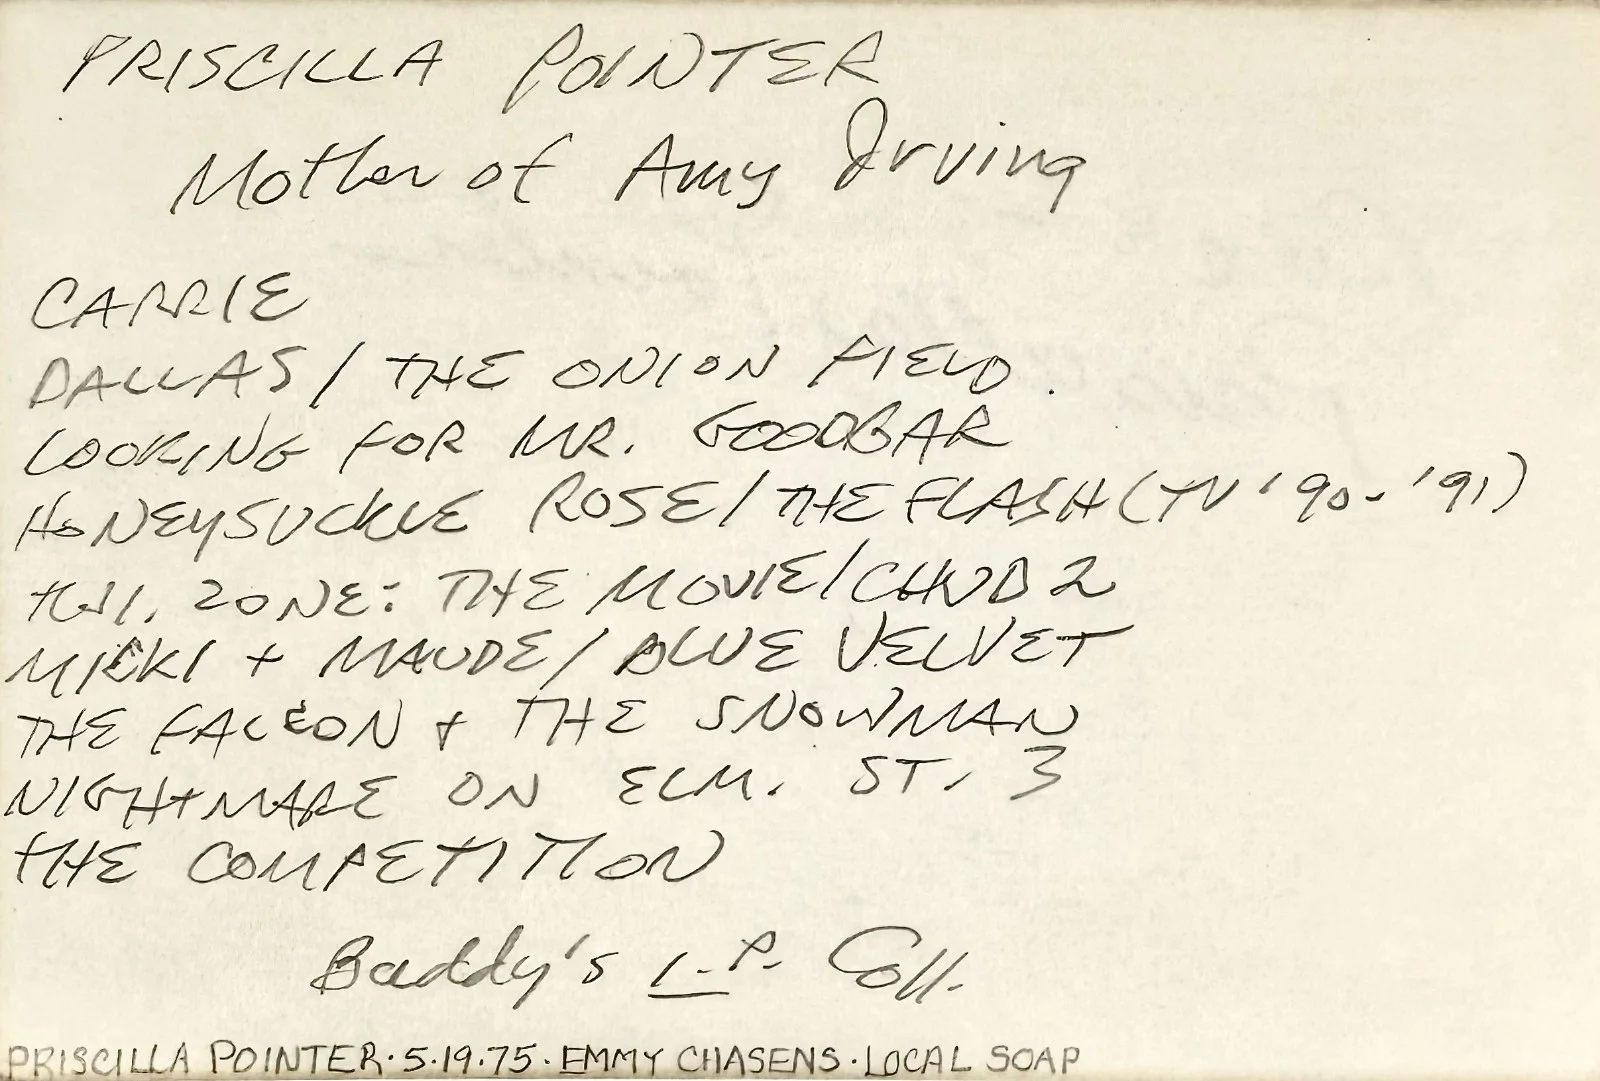 PRISCILLA POINTER
Mother of Amy Irving
CARRIE
DALLAS / THE ONION FIELD.
LOOKING FOR MR. GOODBAR
HONEYSUCKLE ROSE / THE FLASH (TV '90-'91)
TWI. ZONE: THE MOVIE / CHUD 2
MICKI + MAUDE / BLUE VELVET
THE FALCON + THE SNOWMAN
NIGHTMARE ON ELM. ST. 3
THE COMPETITION
Buddy's I.P. Coll.
PRISCILLA POINTER · 5·19·75 · EMMY CHASENS · LOCAL SOAP